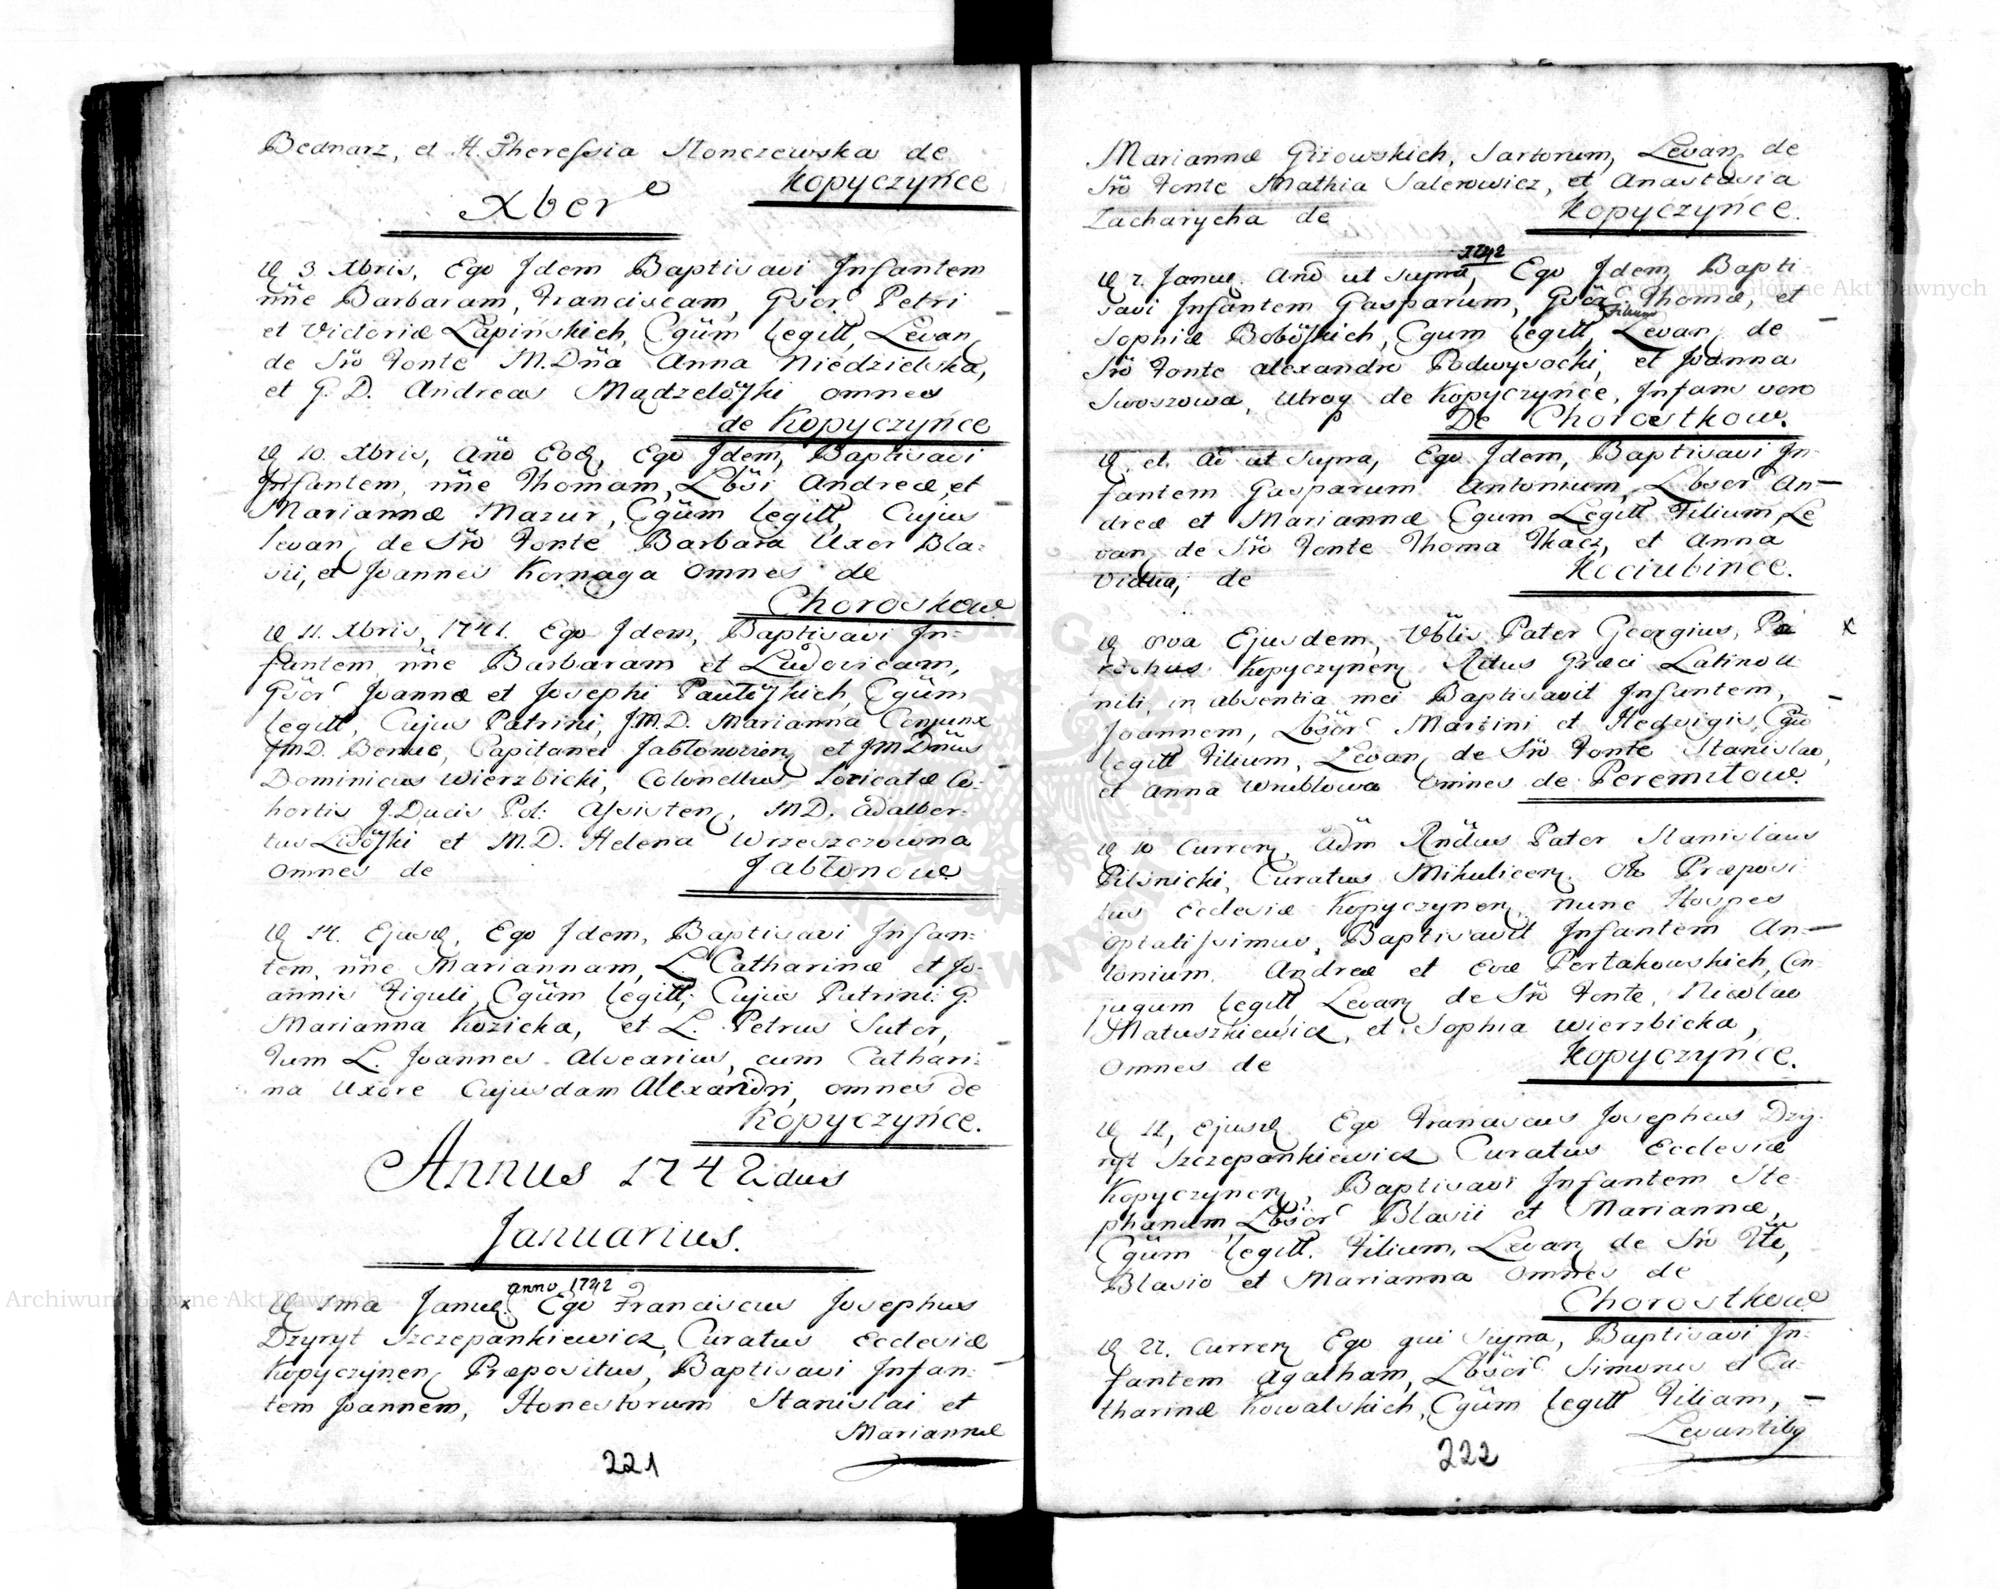 Bednarz, et H. Theressia Stonczewska de
Kopyczyńce
Xbere
D 3. Xbris, Ego Idem Baptisavi Infantem
nñe Barbaram, Franciscam, Gsor Petri
et Victoriæ Łapińskich, Cgũm legitt, Levan
de Sro Fonte M. Dña Anna Niedzielska,
et G. D. Andreas Mądzelöʃki omnes
de Kopyczyńce
D 10. Xbris, Anno Eod, Ego Idem, Baptisavi
Infantem, nñe Thomam, Lbsi Andreæ et
Mariannæ Mazur, Cgũm legitt, Cujus
levan de Sro Fonte Barbara Uxor Bla-
sii, et Joannes Kornaga omnes de
Choroskow
D 11. Xbris, 1741. Ego Idem, Baptisavi In-
fantem, nñe Barbaram et Ludovicam,
Gsor Joannæ et Josephi Pautöʃkich, Cgũm
legitt, Cujus Patrini, J.M.D. Marianna Conjunx
JMD. Benue, Capitanei Jabłonozien et JM Dnus
Dominicus Wierzbicki, Colonellus Loricatæ Co-
hortis J. Ducis Pol: Assisten, M.D. Adalber-
tus Lisöʃki et M.D. Helena Wrzeszczowna
omnes de Jabłonow
D 14. Ejusd, Ego Idem, Baptisavi Infan-
tem, nñe Mariannam, L Catharinæ et Jo-
annis Figuli, Cgũm legitt; Cujus Patrini: G.
Marianna Kozicka, et L. Petrus Sutor,
Tum L. Joannes Alvearius, cum Cathari-
na Uxore Cujusdam Alexandri, omnes de
Kopyczyńce.
Annus 1742dus
Januarius.
anno 1742
D 1ma Janu. Ego Franciscus Josephus
Dzyryt Szczepankiewicz, Curatus Ecclesiæ
Kopyczynen Præpositus, Baptisavi Infan-
tem Joannem, Honestorum Stanislai et
Mariannæ
221
Mariannæ Girowskich, Sartorum, Levan de
Sro Fonte Mathia Salerowicz, et Anastasia
Zacharycha de Kopyczyńce.
1742
D 7. Janu. Ano ut supra, Ego Idem Bapti-
savi Infantem Gasparum, Gsor Thomæ, et
filium
Sophiæ Boböʃkich, Cgum legitt, Levan de
Sro Fonte Alexandro Podwysocki, et Joanna
Swoszowa, Utrog de Kopyczyńce, Infans vero
De Chorostkow.
D et Ao ut supra, Ego Idem, Baptisavi In-
fantem Gasparum Antonium, Lbsor An-
dreæ et Mariannæ Cgum Legitt Filium, Le
van de Sro Fonte Thoma Tkacz, et Anna
Vidua, de Kociubince.
D 8va Ejusdem, Vblis Pater Georgius, Pa
rochus Kopyczynen Ritus Græci Latino U
niti, in absentia mei Baptisavit Infantem,
Joannem, Lbsor Martini et Hedvigis, Cgu
legitt Filium, Levan de Sro Fonte Stanislao,
et Anna Wrublowa omnes de Peremiłow.
D 10 Curren, Adm Rndus Pater Stanislaus
Pilsnicki, Curatus Mikulicen. Præposi
tus Ecclesiæ Kopyczynen, nunc Hospes
optatissimus, Baptisavit Infantem An-
tonium. Andreæ et Evæ Portakowskich, Con
jugum legitt Levan de Sro Fonte, Nicolao
Matuszkiewicz, et Sophia Wierzbicka,
Omnes de Kopyczyńce.
D 11, Ejusd. Ego Franciscus Josephus Dzy-
ryt Szczepankiewicz Curatus Ecclesiæ
Kopyczynen, Baptisavi Infantem Ste
phanum, Lbsor Blasii et Mariannæ,
Cgũm legitt. Filium, Levan de Sro Fte,
Blasio et Marianna Omnes de
Chorostkow
D 27. Curren Ego qui supra, Baptisavi In-
fantem Agatham, Lbsor Simonis et Ca-
tharinæ Kowalskich, Cgũm legitt Filiam,
Levantibq
222
Archiwum Główne Akt Dawnych
Archiwum Główne Akt Dawnych